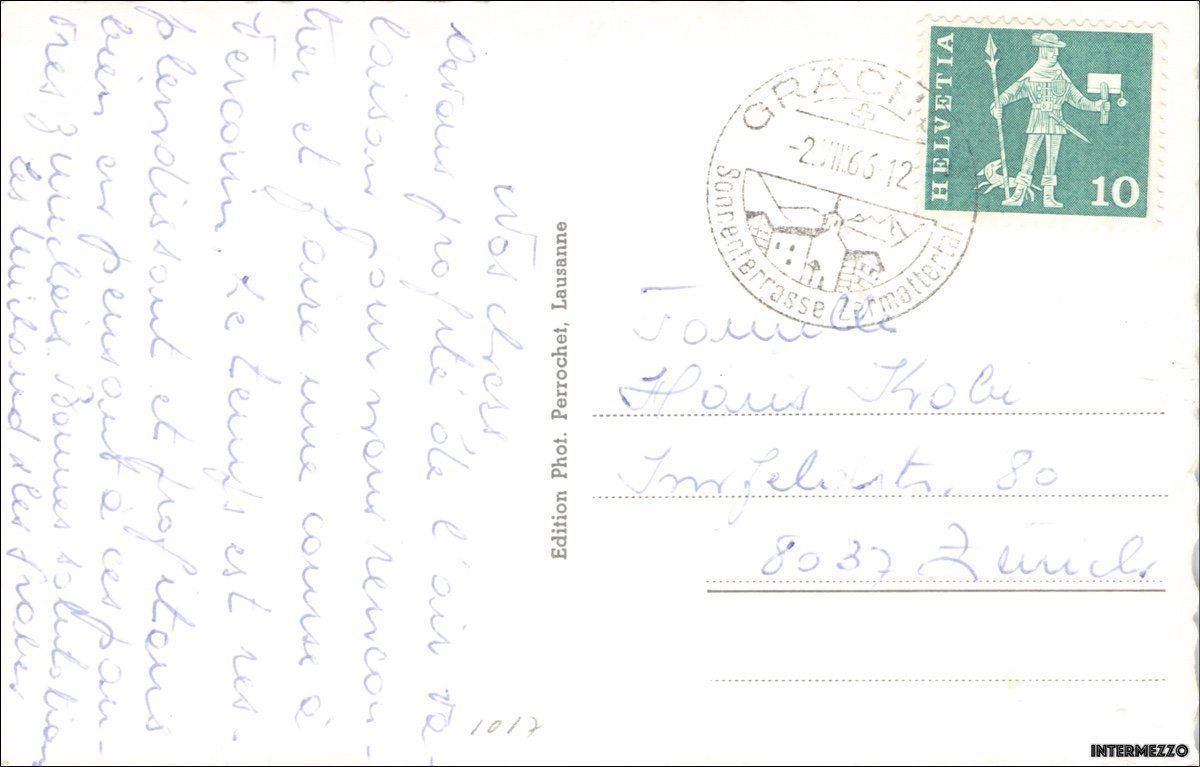 Nos chers
Avons profité de l'air va-
laisan pour vous rencon-
trer et faire une course à
Vercorin. Le temps est res-
plendissant et profitons
bien en pensant à ces pau-
vres Zurichois. Bonnes salutations
Les
Edition Phot. Perrochet, Lausanne
1017
GRÄCHEN
-2.VIII.66-12
Sonnenterrasse Zermattertal
HELVETIA
10
Familie
Hans Kobi
Imfeldstr. 80
8037 Zürich
INTERMEZZO